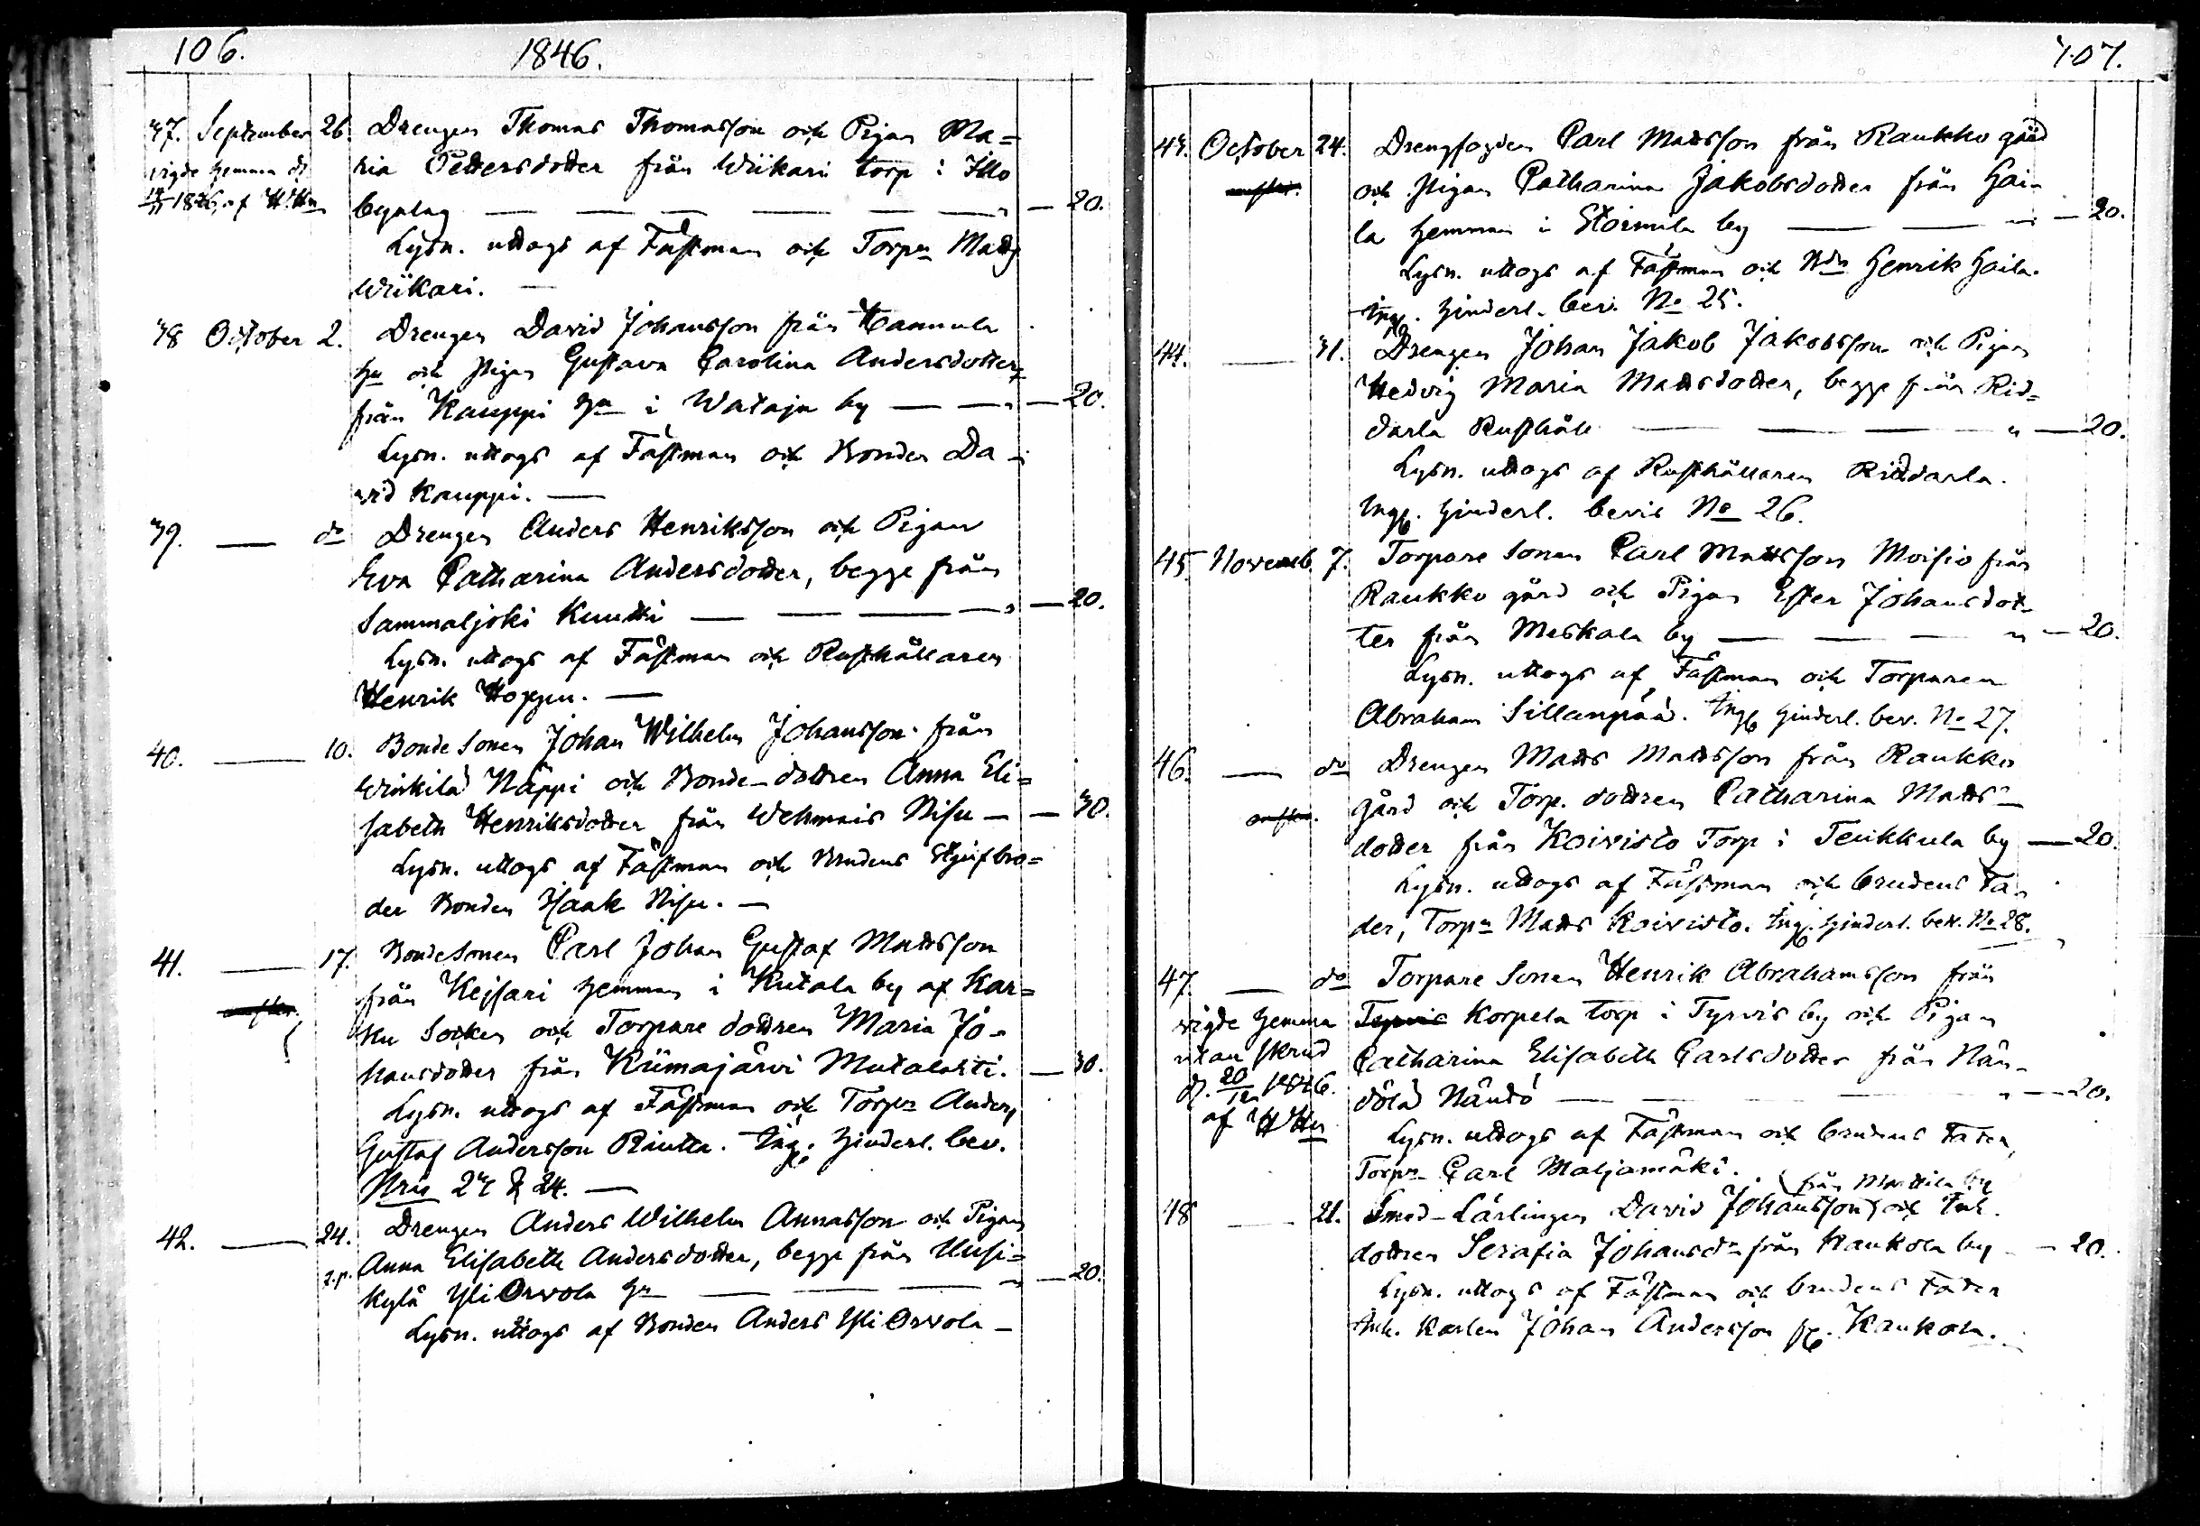 106. 1846.
37. September 26. Drengen Thomas Thomasson och Pigan Ma=
vigde hemma d. ria Pettersdotter från Wiikari torp i Illo
1846, af byalag — — — — — — 20.
Lysn. uttogs af Fästman och Torpn Matts
Wiikari. —
38 October 2. Drengen David Johansson från Hannula
hn och Pigan Gustava Carolina Andersdotter,
från Kauppi hn i Wataja by — — — 20.
Lysn. uttogs af Fästman och Bonden Da-
vid Kauppi. —
39. — do Drengen Anders Henriksson och Pigan
Eva Catharina Andersdotter, begge från
Sammaljoki Knutti — — — — 20.
Lysn. uttogs af Fästman och Rusthållaren
Henrik Hoppu. —
40. — 10. Bonde Sonen Johan Wilhelm Johansson från
Winkilä Näppi och Bonde-dottren Anna Eli=
sabeth Henriksdotter från Wehmais Nisu — — 30.
Lysn. uttogs af Fästman och Brudens Styfbro=
der Bonden Isaak Nisu. —
41. — 17. Bondesonen Carl Johan Gustaf Mattsson
från Kejsari hemman i Kutala by af Kar=
ku Socken och Torpare dottren Maria Jo-
hansdotter från Kiimajärvi Mutalahti. — 30.
Lysn. uttogs af Fästman och Torpn Anders
Gustaf Andersson Riutta. Ing. hinderl. bev.
Nris 23 & 24. —
42. — 24. Drengen Anders Wilhelm Annasson och Pigan
Anna Elisabeth Andersdotter, begge från Uusi=
kylä Yli Orvola hn — — — — 20.
Lysn. uttogs af Bonden Anders Yli Orvola —
107.
43. October 24. Drengfogden Carl Mattsson från Raukko gård
och Pigan Catharina Jakobsdotter från Hai-
la hemman i Stormila by — — — 20.
Lysn. uttogs af Fästman och Bdn Henrik Haila.
Ing. hinderl. bev. No 25.
44. — 31. Drengen Johan Jakob Jakobsson och Pigan
Hedvig Maria Mattsdotter, begge från Rid=
darla Rusthåll — — — " — 20.
Lysn. uttogs af Rusthållaren Riddarla.
Ing. hinderl. bevis No 26.
45. Novemb. 7. Torpare Sonen Carl Mattsson Moisio från
Raukko gård och Pigan Ester Johansdot-
ter från Meskala by — — — " — 20.
Lysn. uttogs af Fästman och Torparen
Abraham Sillanpää. Ing. hinderl. bev. No 27.
46. — do Drengen Matts Mattsson från Raukko
gård och Torp. dottren Catharina Matts-
dotter från Koivisto Torp i Teukkula by — 20.
Lysn. uttogs af Fästman och brudens Fa-
der, Torpn Matts Koivisto. Ing. hinderl. bev. No 28.
47. — do Torpare Sonen Henrik Abrahamsson från
vigde hemma Tyrvis Korpela torp i Tyrvis by och Pigan
utan skrud Catharina Elisabeth Carlsdotter från Nän-
d. 20/12 1846. dölä Nändö — — — " — 20.
af HHn Lysn. uttogs af Fästman och brudens Fader,
Torpn Carl Maljamäki.
från Marttila by
48 — 21. Smed-Lärlingen David Johansson och Inh.
dottren Serafia Johansdr från Kaukola by — 20.
Lysn. uttogs af Fästman och brudens Fader
Inh. Karlen Johan Andersson fr. Kaukola.